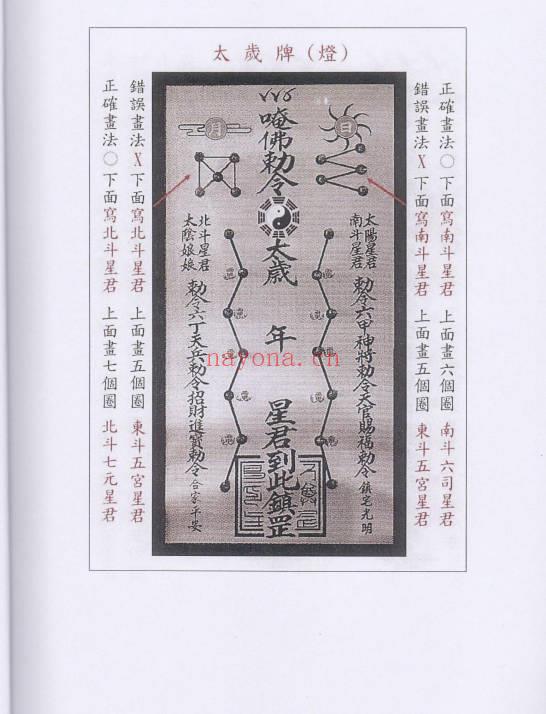 太歲牌(燈)
正確畫法○下面寫南斗星君 上面畫六個圈 南斗六司星君
錯誤畫法X下面寫南斗星君 上面畫五個圈 東斗五宮星君
日
太陽星君
南斗星君
勅令六甲神將勅令天官賜福勅令鎮宅光明
唵佛勅令
太歲 年 星君到此鎮罡
月
北斗星君
太陰娘娘
勅令六丁天兵勅令招財進寶勅令合家平安
錯誤畫法X下面寫北斗星君 上面畫五個圈 東斗五宮星君
正確畫法○下面寫北斗星君 上面畫七個圈 北斗七元星君
nayona.cn